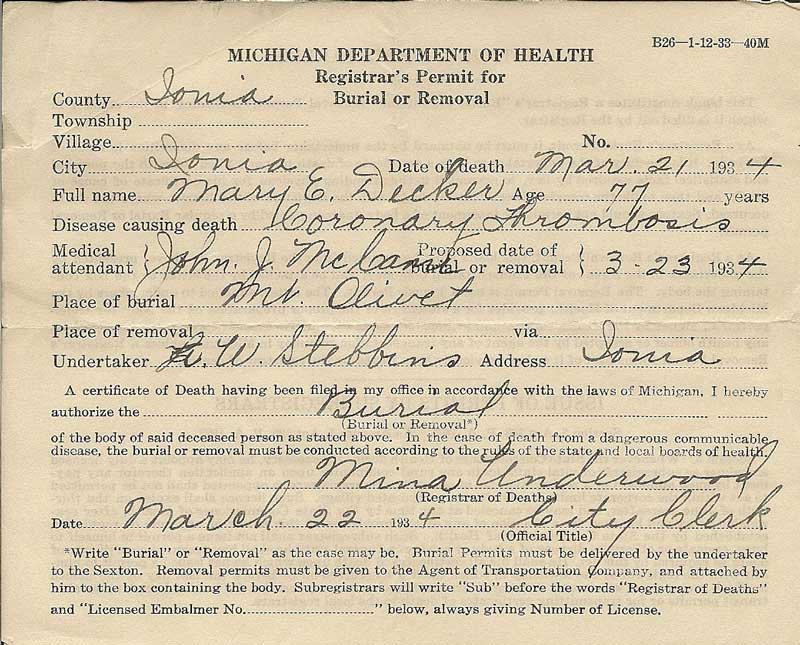 B26—1-12-33—40M
MICHIGAN DEPARTMENT OF HEALTH
Registrar's Permit for
Burial or Removal
County Ionia
Township
Village No.
City Ionia Date of death Mar. 21 1934
Full name Mary E. Decker Age 77 years
Disease causing death Coronary Thrombosis
Medical attendant John. J. McCann Proposed date of burial or removal 3-23 1934
Place of burial Mt. Olivet
Place of removal via
Undertaker W. Stebbins Address Ionia
A certificate of Death having been filed in my office in accordance with the laws of Michigan, I hereby
authorize the Burial
(Burial or Removal*)
of the body of said deceased person as stated above. In the case of death from a dangerous communicable
disease, the burial or removal must be conducted according to the rules of the state and local boards of health.
Mina Underwood
(Registrar of Deaths)
Date March. 22 1934 City Clerk
(Official Title)
*Write "Burial" or "Removal" as the case may be. Burial Permits must be delivered by the undertaker
to the Sexton. Removal permits must be given to the Agent of Transportation Company, and attached by
him to the box containing the body. Subregistrars will write "Sub" before the words "Registrar of Deaths"
and "Licensed Embalmer No. " below, always giving Number of License.